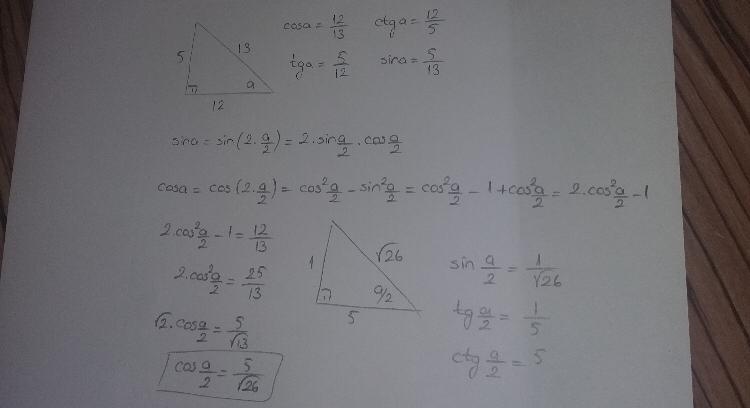 cosa = 12/13 ctga = 12/5
5 13
tga = 5/12 sina = 5/13
a
12
sina = sin(2.a/2) = 2.sin a/2 . cos a/2
cosa = cos(2.a/2) = cos²a/2 - sin²a/2 = cos²a/2 - 1 + cos²a/2 = 2.cos²a/2 - 1
2.cos²a/2 - 1 = 12/13
2.cos²a/2 = 25/13
√2.cos a/2 = 5/√13
cos a/2 = 5/√26
1 √26
a/2
5
sin a/2 = 1/√26
tg a/2 = 1/5
ctg a/2 = 5